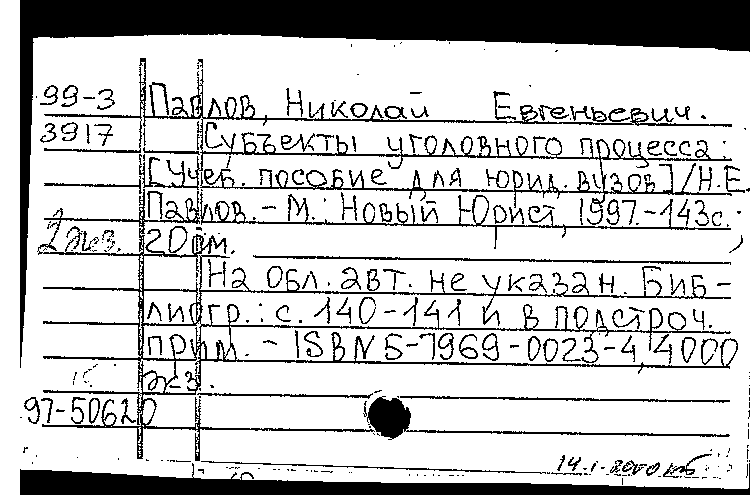 99-3 Павлов, Николай Евгеньевич.
3917 Субъекты уголовного процесса:
[Учеб. пособие для юрид. вузов] / Н.Е.
Павлов. - М.: Новый Юрист, 1997. - 143с.;
2 экз. 20см.
На обл. авт. не указан. Биб-
лиогр.: с. 140-141 и в подстроч.
прим. - ISBN 5-7969-0023-4, 4000
экз.
97-50620
14.1.2000